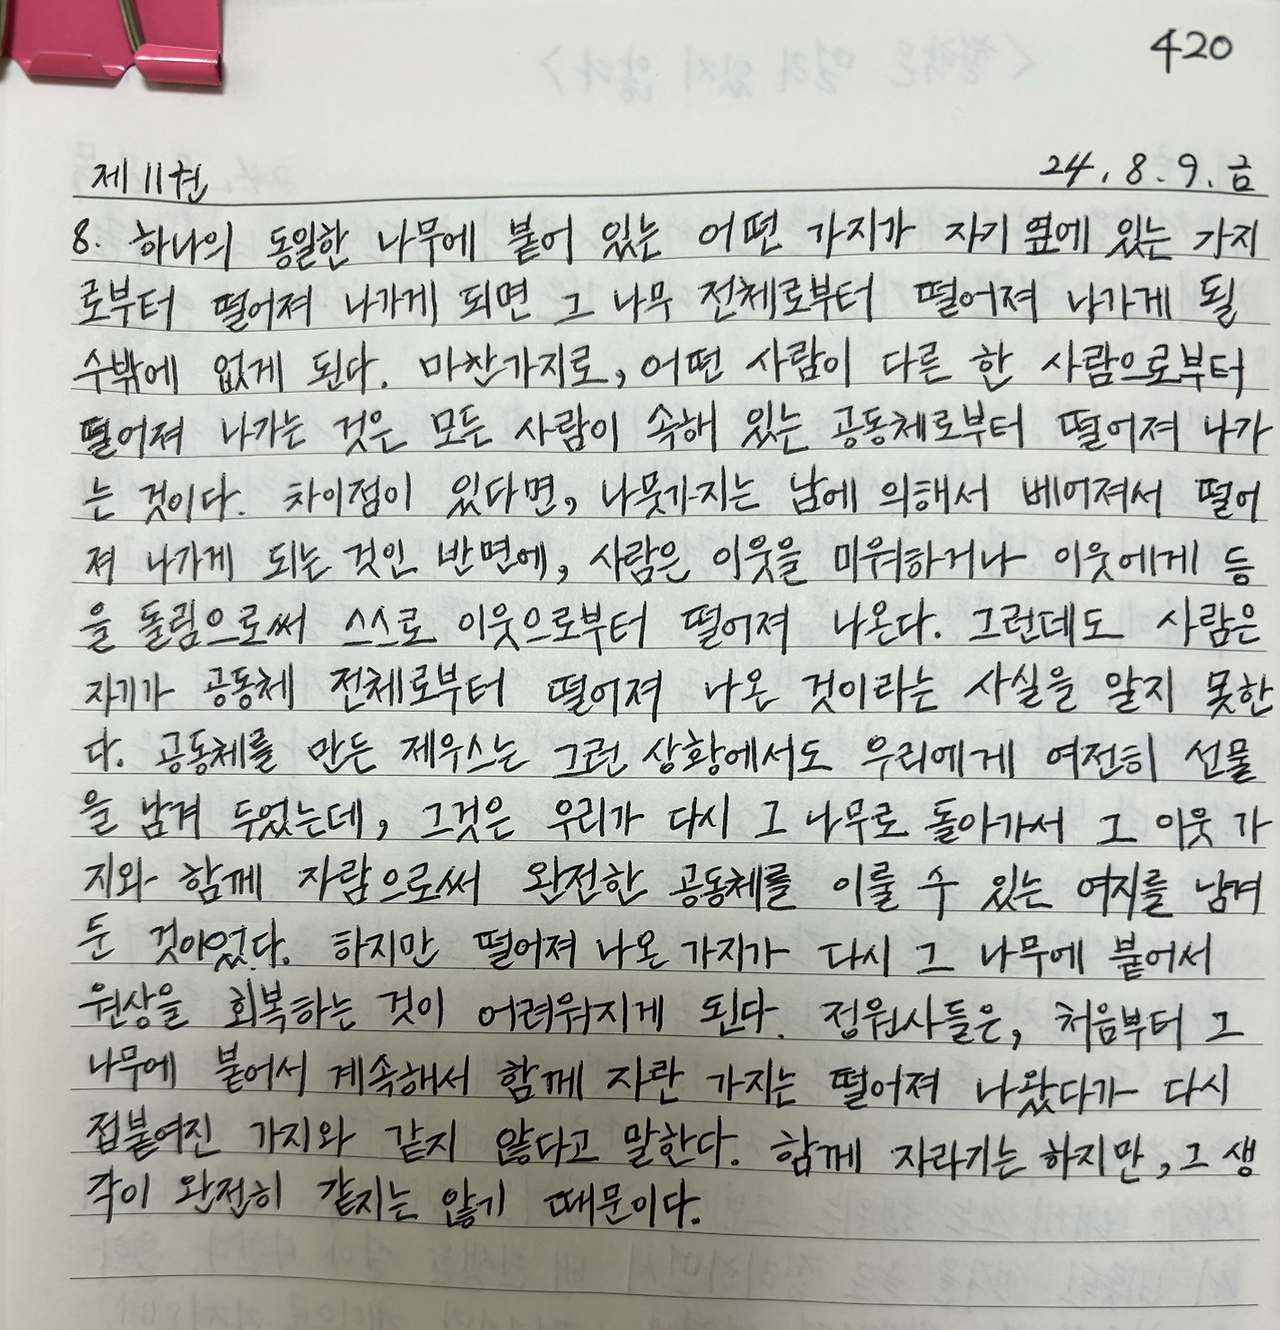 420
제11권 24.8.9.금
8. 하나의 동일한 나무에 붙어 있는 어떤 가지가 자기 옆에 있는 가지
로부터 떨어져 나가게 되면 그 나무 전체로부터 떨어져 나가게 될
수밖에 없게 된다. 마찬가지로, 어떤 사람이 다른 한 사람으로부터
떨어져 나가는 것은 모든 사람이 속해 있는 공동체로부터 떨어져 나가
는 것이다. 차이점이 있다면, 나뭇가지는 남에 의해서 베어져서 떨어
져 나가게 되는 것인 반면에, 사람은 이웃을 미워하거나 이웃에게 등
을 돌림으로써 스스로 이웃으로부터 떨어져 나온다. 그런데도 사람은
자기가 공동체 전체로부터 떨어져 나온 것이라는 사실을 알지 못한
다. 공동체를 만든 제우스는 그런 상황에서도 우리에게 여전히 선물
을 남겨 두었는데, 그것은 우리가 다시 그 나무로 돌아가서 그 이웃 가
지와 함께 자람으로써 완전한 공동체를 이룰 수 있는 여지를 남겨
둔 것이었다. 하지만 떨어져 나온 가지가 다시 그 나무에 붙어서
원상을 회복하는 것이 어려워지게 된다. 정원사들은, 처음부터 그
나무에 붙어서 계속해서 함께 자란 가지는 떨어져 나왔다가 다시
접붙여진 가지와 같지 않다고 말한다. 함께 자라기는 하지만, 그 생
각이 완전히 같지는 않기 때문이다.